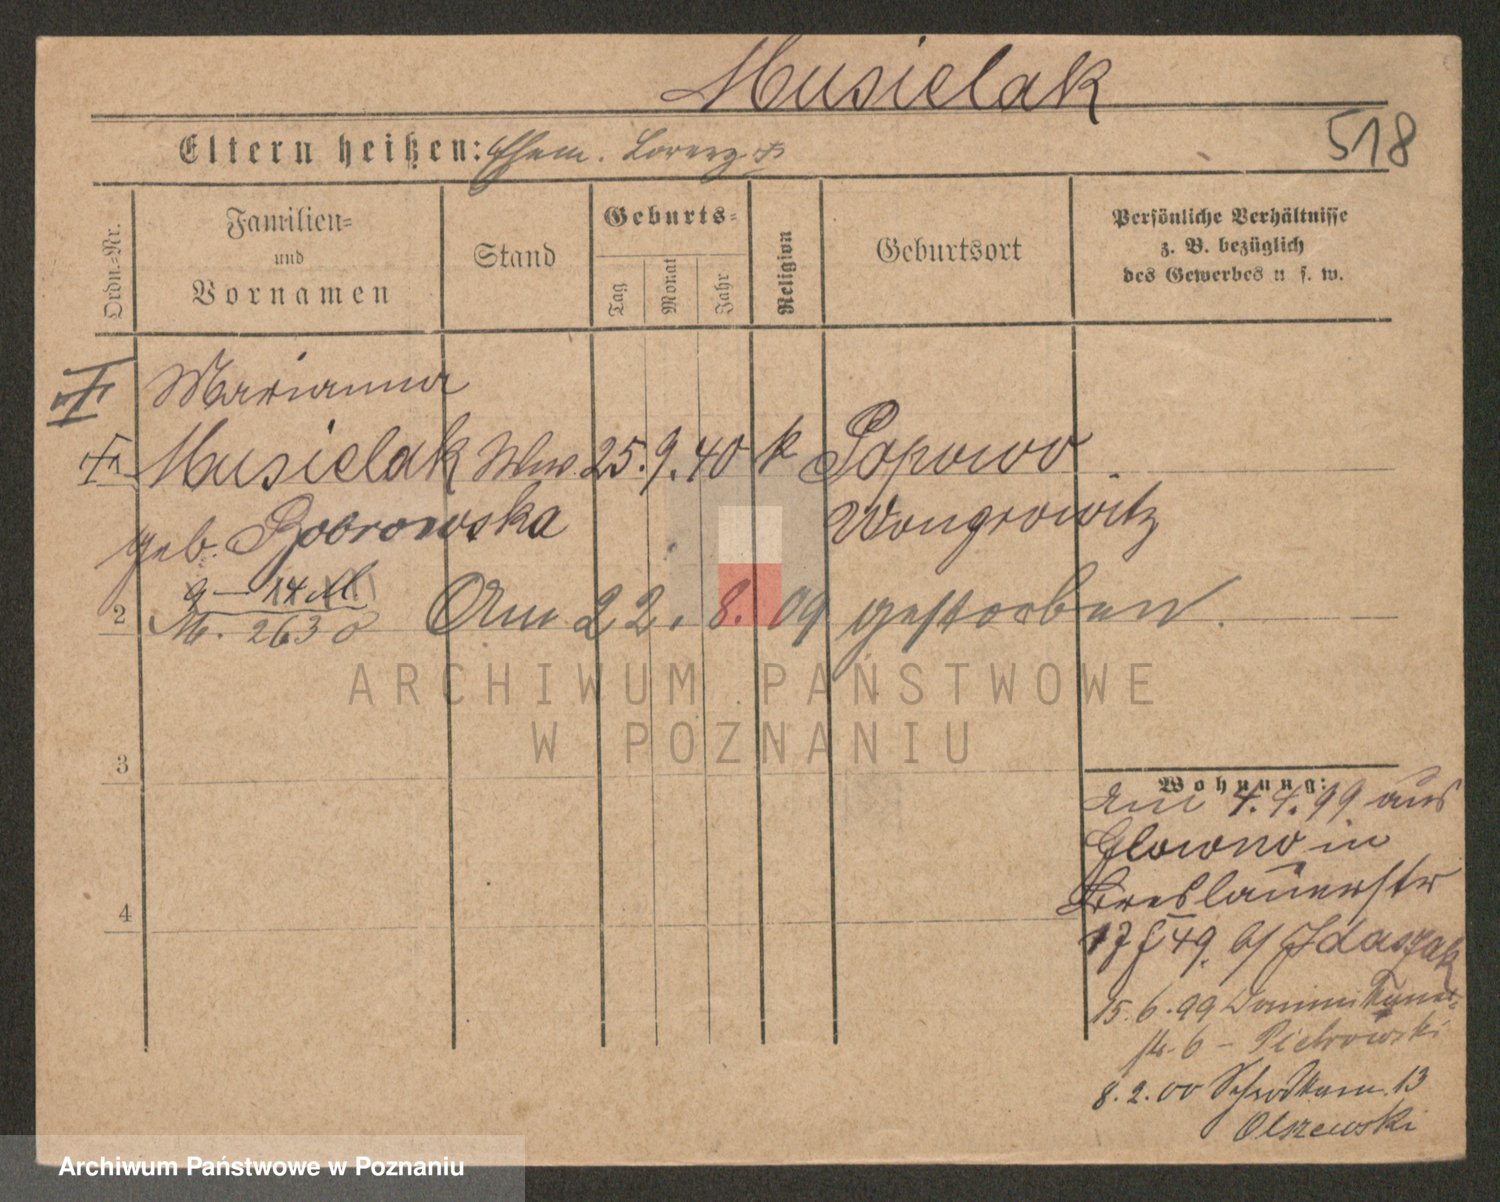 Musielak
518
Eltern heißen: Ehem. Lorenz
Ordn.-Nr.
Familien-
und
Vornamen
Stand
Geburts-
Tag
Monat
Jahr
Religion
Geburtsort
Persönliche Verhältnisse
z. B. bezüglich
des Gewerbes u. s. w.
Marianna
Musielak Ww. 25. 9. 40 k Popowo
geb. Bobrowska Wongrowitz
9 — 14
2 2630 Am 22. 8. 09 gestorben.
3
4
Wohnung:
Am 4. 4. 99 aus
Glowno in
Breslauerstr
17 49. b/ Idaszak
15. 6. 99 Dominikaner-
str. 6 - Pietrowski
8. 2. 00 Schrodkam. 13
Olszewski
ARCHIWUM PAŃSTWOWE
W POZNANIU
Archiwum Państwowe w Poznaniu